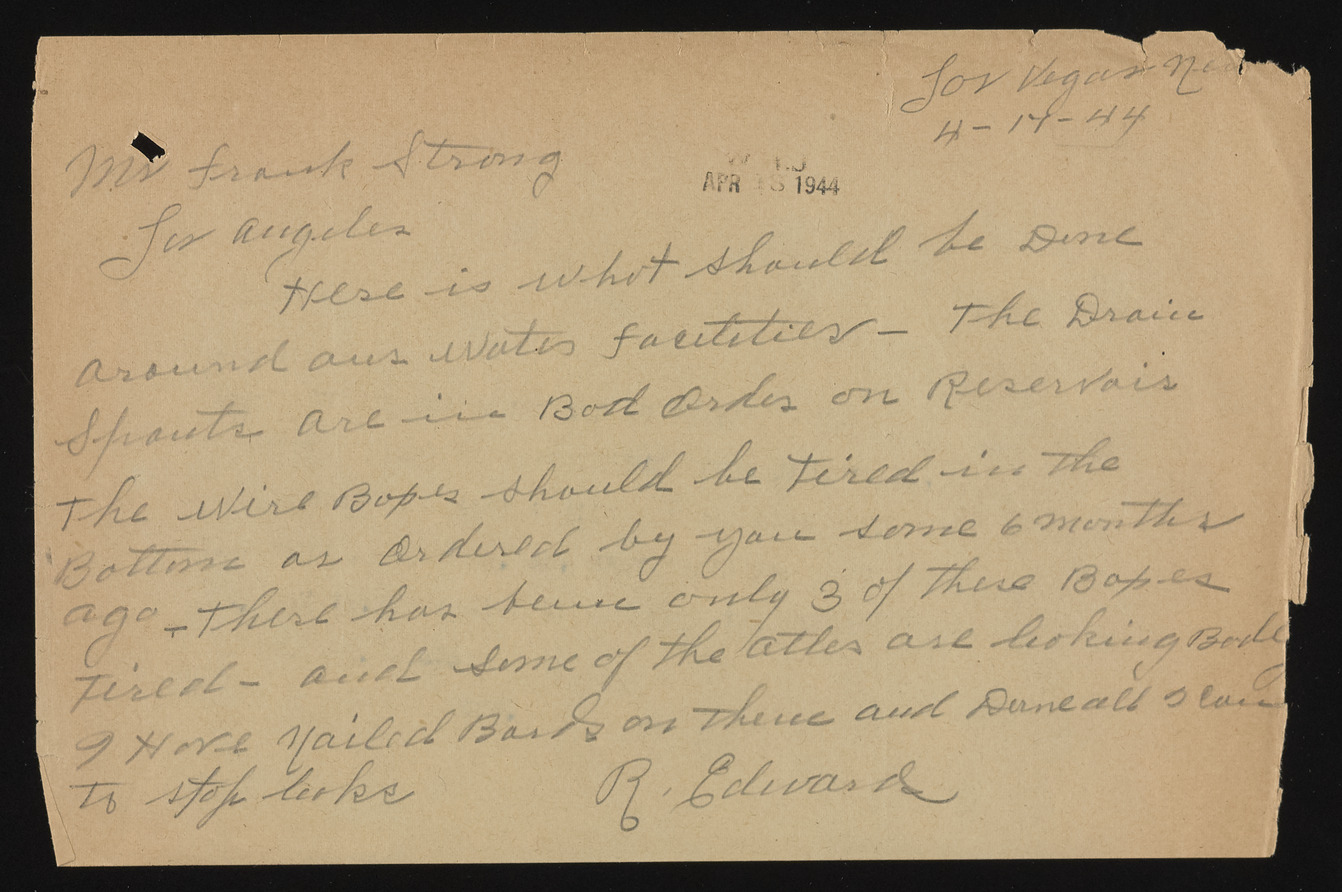 Los Vegas Nev
4-17-44
Mr Frank Strong
APR 18 1944
Los Angeles
Here is what should be Done
around our Water Facilities - The Drain
Spouts are in Bad Order on Reservoir
The Wire Boxes should be Tired in the
Bottom as Ordered by you some 6 months
ago - There has been only 3 of these Boxes
Tired - and some of the other are leaking Badly
I Have Nailed Bords on them and Done all I can
to stop leaks
R. Edward